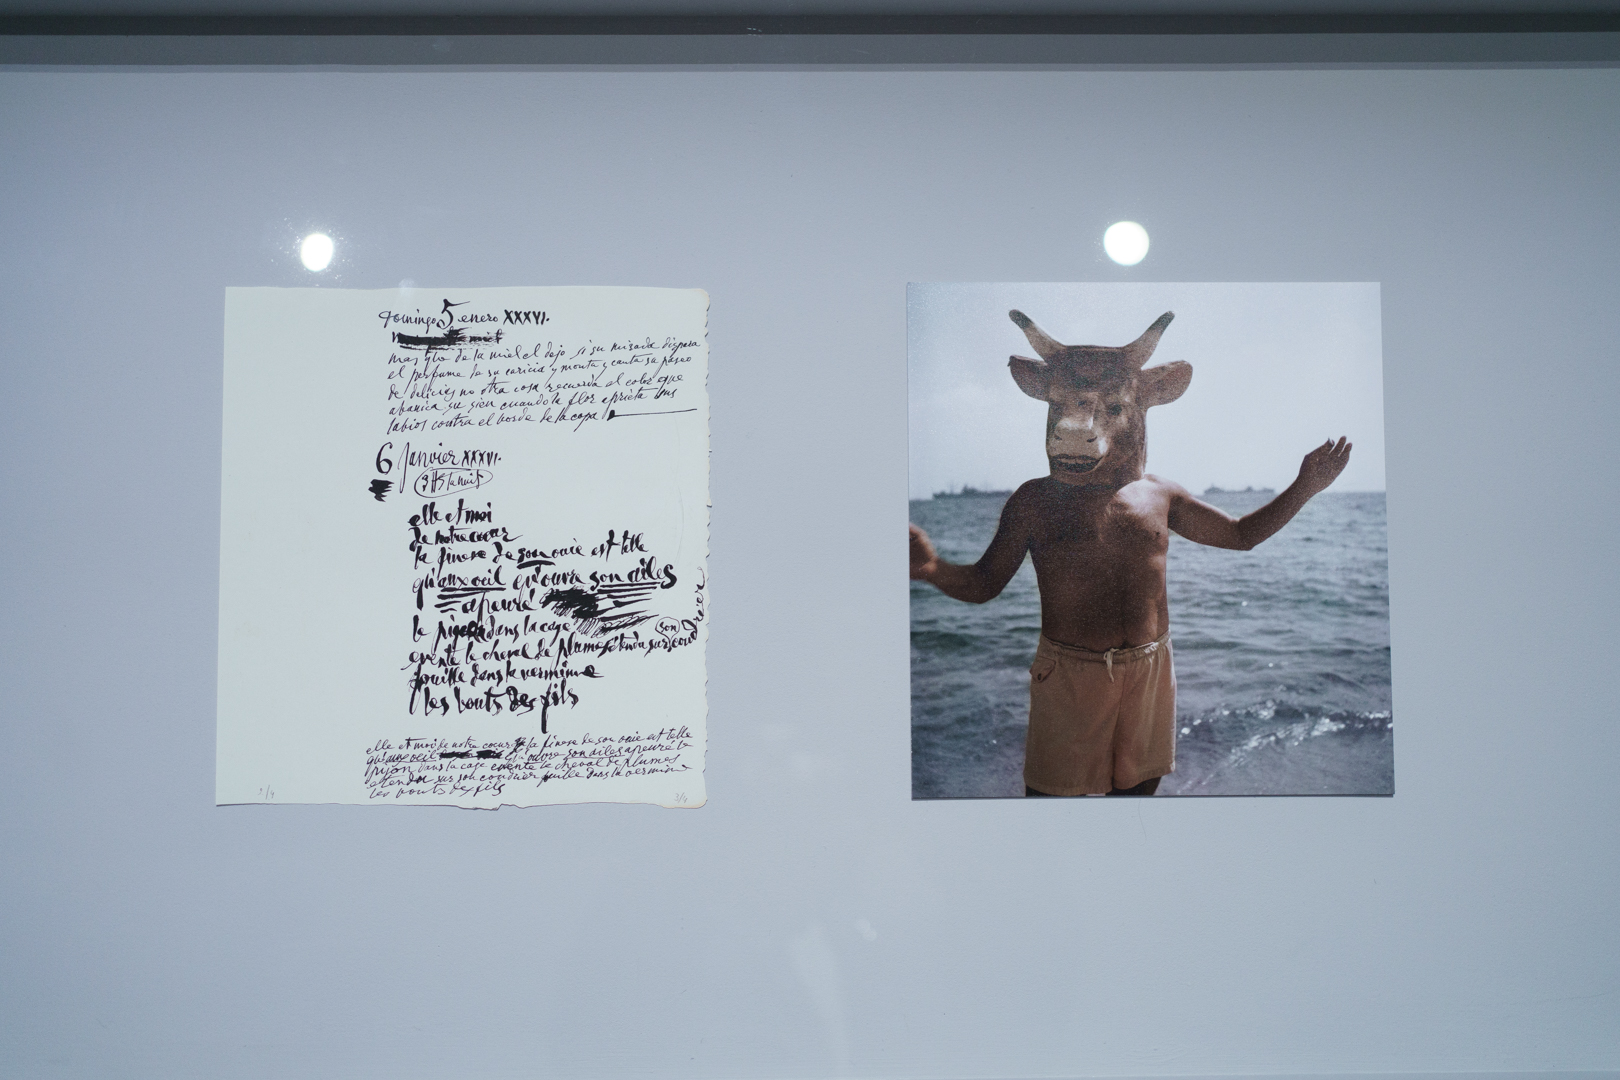 domingo 5 enero XXXVI.
mas que de la miel el dejo si su mirada dispara
el perfume de su caricia y monta y canta su paseo
de delicias no otra cosa recuerda el color que
abanica su sien cuando la flor aprieta sus
labios contra el borde de la copa
6 janvier XXXVI.
3 H S la nuit
elle et moi
de notre coeur
la finesse de son ouie est telle
qu'aux oeil qu'ouvre son ailes
apeuré
le pigeon dans la cage
son
evente le cheval de plumes étendu sur coudrier
fouille dans la vermine
les bouts des fils
elle et moi de notre coeur la finesse de son ouie est telle
qu'aux oeil qu'ouvre son ailes apeuré le
pijon dans la cage evente le cheval de plumes
etendu sur son coudrier fouille dans la vermine
les bouts des fils
3/4